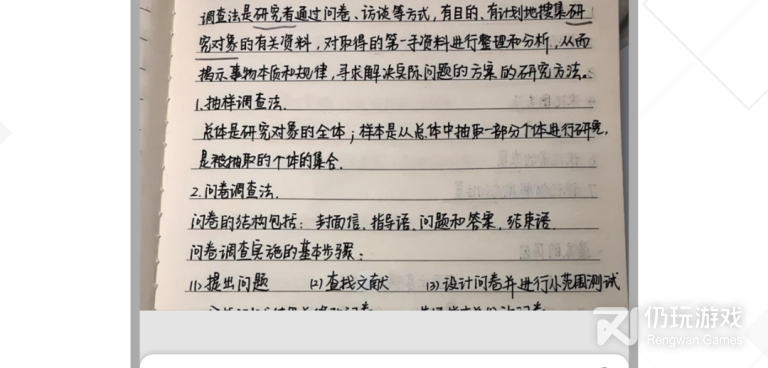 调查法是研究者通过问卷、访谈等方式,有目的、有计划地搜集研
究对象的有关资料,对取得的第一手资料进行整理和分析,从而
揭示事物本质和规律,寻求解决实际问题的方案的研究方法。
1.抽样调查法.
总体是研究对象的全体;样本是从总体中抽取一部分个体进行研究,
是被抽取的个体的集合.
2.问卷调查法.
问卷的结构包括:封面信、指导语、问题和答案、结束语.
问卷调查实施的基本步骤:
(1)提出问题 (2)查找文献 (3)设计问卷并进行小范围测试
仍玩游戏
Rengwan Games